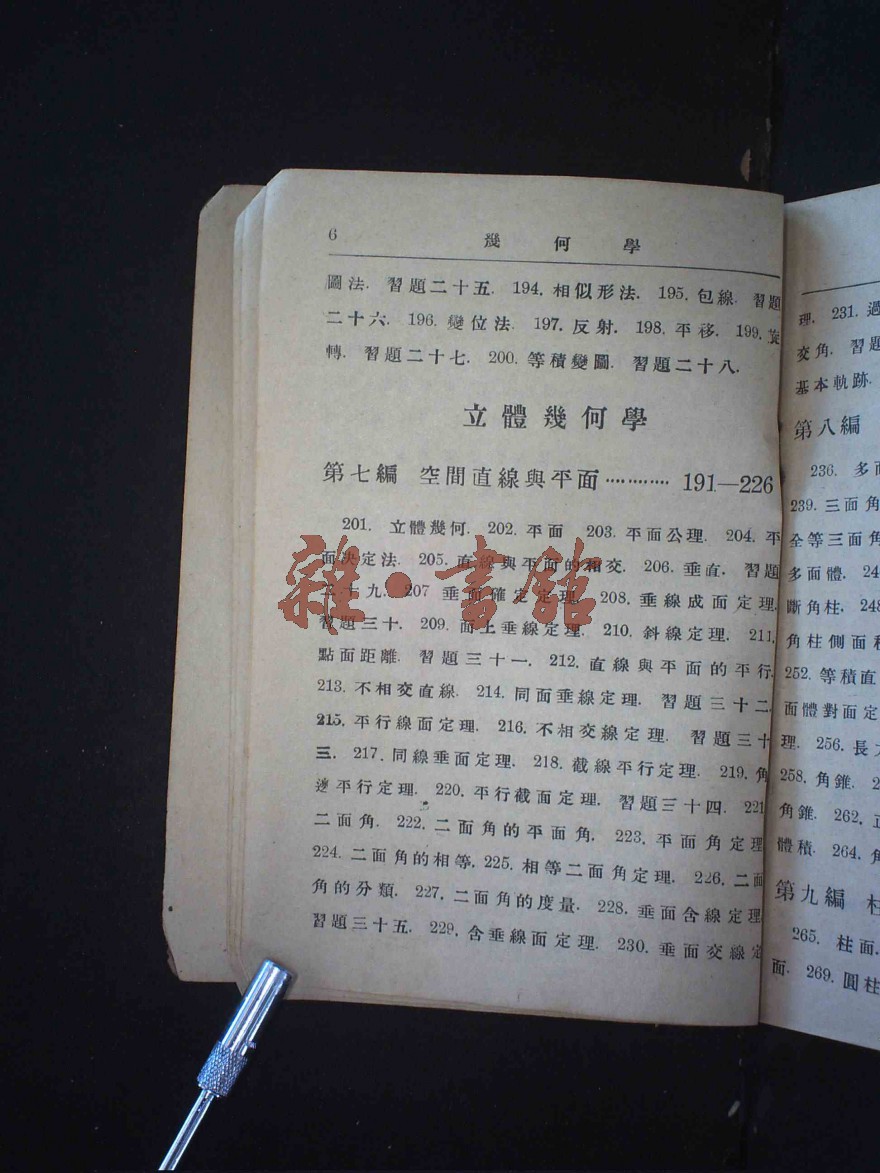 6 幾何學
圖法. 習題二十五. 194. 相似形法. 195. 包線. 習題
二十六. 196. 變位法. 197. 反射. 198. 平移. 199. 旋
轉. 習題二十七. 200. 等積變圖. 習題二十八.
立體幾何學
第七編 空間直線與平面………… 191—226
201. 立體幾何. 202. 平面 203. 平面公理. 204. 平
面決定法. 205. 直線與平面的相交. 206. 垂直. 習題
二十九. 207 垂面確定定理. 208. 垂線成面定理.
習題三十. 209. 面上垂線定理. 210. 斜線定理. 211.
點面距離. 習題三十一. 212. 直線與平面的平行.
213. 不相交直線. 214. 同面垂線定理. 習題三十二.
215. 平行線面定理. 216. 不相交線定理. 習題三十
三. 217. 同線垂面定理. 218. 截線平行定理. 219. 角
邊平行定理. 220. 平行截面定理. 習題三十四. 221
二面角. 222. 二面角的平面角. 223. 平面角定理
224. 二面角的相等. 225. 相等二面角定理. 226. 二面
角的分類. 227. 二面角的度量. 228. 垂面含線定理
習題三十五. 229. 含垂線面定理. 230. 垂面交線定
雜·書館
理. 231. 過
交角. 習題
基本軌跡.
第八編
236. 多面
239. 三面角
全等三面角
多面體. 24
斷角柱. 248
角柱側面積
252. 等積直
面體對面定
理. 256. 長方
258. 角錐. 2
角錐. 262. 正
體積. 264. 角
第九編 柱
265. 柱面.
面. 269. 圓柱